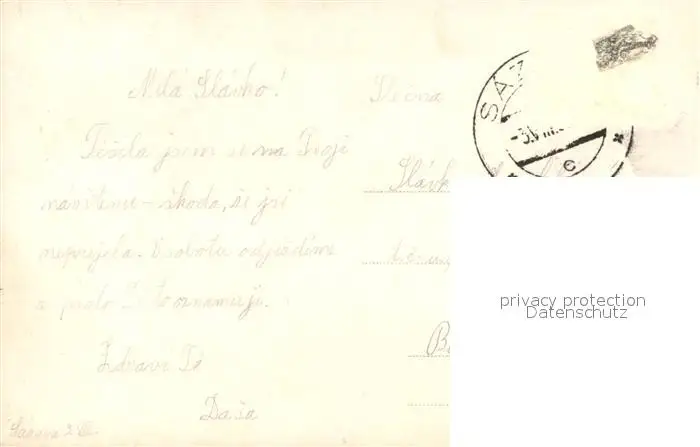 Milá Slávko!
Těšila jsem se na Tvoji
návštěvu - škoda, že jsi
nepřijela. V sobotu odjíždíme
a proto Ti to oznamuji.
Zdraví Tě
Dáša
Sázava 2. VIII.
Slečna
Slávk
SÁZ
-3.VIII.
c
privacy protection
Datenschutz